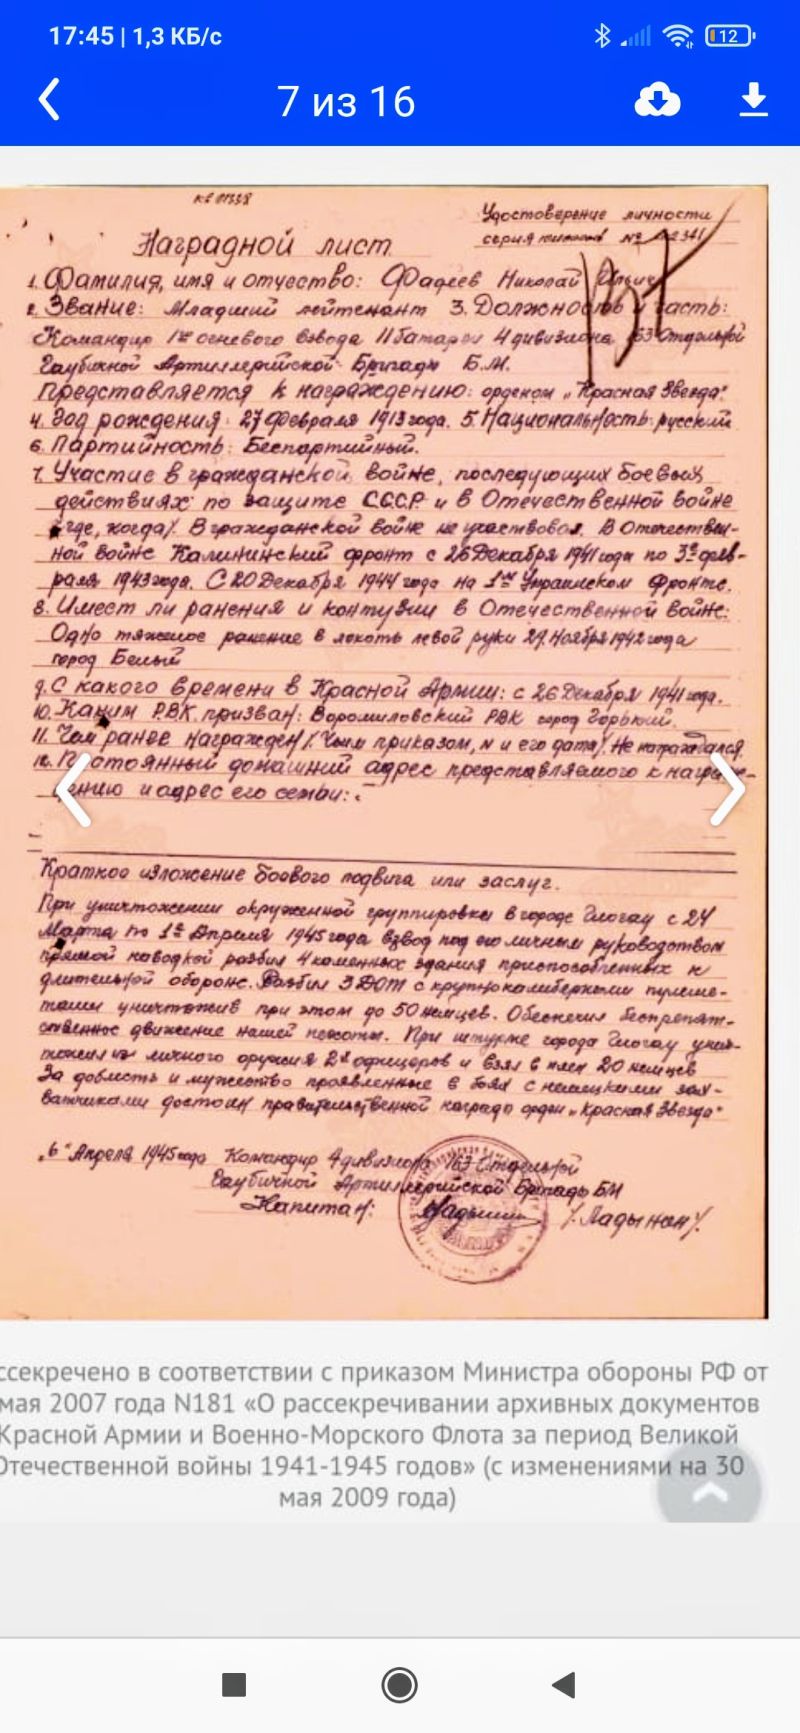 17:45 | 1,3 КБ/с
12
7 из 16
Удостоверение личности
серия № 
Наградной лист
1. Фамилия, имя и отчество: Фадеев Николай Ильич
2. Звание: Младший лейтенант 3. Должность и часть:
Командир 1го огневого взвода 11 батареи 4 дивизиона 163 Отдельной
Гаубичной Артиллерийской Бригады Б.М.
Представляется к награждению: орденом „Красная Звезда"
4. Год рождения: 27 февраля 1913 года. 5. Национальность: русский
6. Партийность: Беспартийный.
7. Участие в гражданской войне, последующих боевых
действиях по защите СССР и в Отечественной войне
/где, когда/. В гражданской войне не участвовал. В Отечествен-
ной войне Калининский фронт с 26 Декабря 1941 года по 3е фев-
раля 1943 года. С 20 Декабря 1944 года на 1ом Украинском Фронте.
8. Имеет ли ранения и контузии в Отечественной войне:
Одно тяжелое ранение в локоть левой руки 29 Ноября 1942 года
город Белый
9. С какого времени в Красной Армии: с 26 Декабря 1941 года.
10. Каким РВК призван: Ворошиловский РВК город Горький.
11. Чем ранее награжден /. Чьим приказом, N и его дата/. Не награждался
12. Постоянный домашний адрес представляемого к награж-
дению и адрес его семьи: -
Краткое изложение боевого подвига или заслуг.
При уничтожении окруженной группировки в городе Глогау с 24
Марта по 1е Апреля 1945 года взвод под его личным руководством
прямой наводкой разбил 4 каменных здания приспособленных к
длительной обороне. Разбил 3 ДОТ с крупнокалиберными пулеме-
тами уничтожив при этом до 50 немцев. Обеспечил беспрепят-
ственное движение нашей пехоты. При штурме города Глогау унич-
тожил из личного оружия 2х офицеров и взял в плен 20 немцев
За доблесть и мужество проявленные в боях с немецкими зах-
ватчиками достоин правительственной награды орден „Красная Звезда"
„6" Апреля 1945 года Командир 4 дивизиона 163 Отдельной
Гаубичной Артиллерийской Бригады БМ
Капитан: /. Ладынан/.
ссекречено в соответствии с приказом Министра обороны РФ от
мая 2007 года N181 «О рассекречивании архивных документов
Красной Армии и Военно-Морского Флота за период Великой
Отечественной войны 1941-1945 годов» (с изменениями на 30
мая 2009 года)